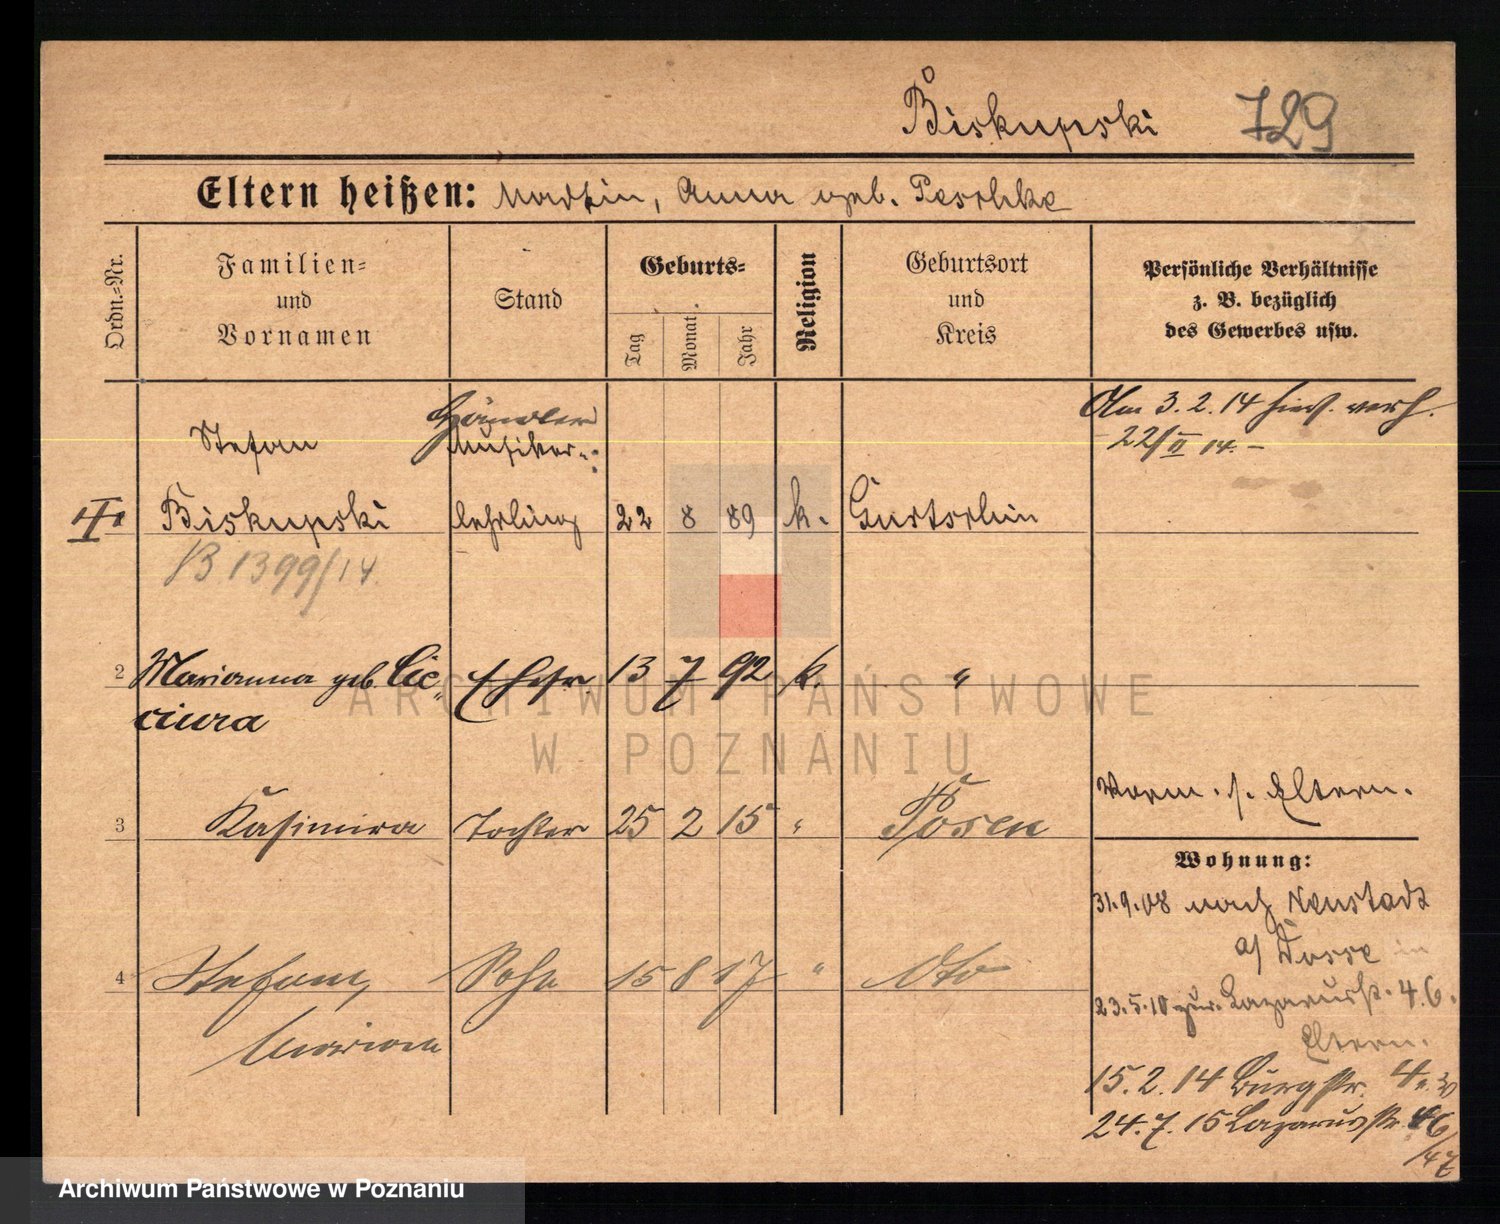 Biskupski 729
Eltern heißen: Martin, Anna geb. Peschke
Ordn.-Nr.
Familien-
und
Vornamen
Stand
Geburts-
Tag
Monat
Jahr
Religion
Geburtsort
und
Kreis
Persönliche Verhältnisse
z. B. bezüglich
des Gewerbes usw.
Händler
Stefan Musiker-
Biskupski lehrling 22 8 89 k. Gurtschin
Am 3. 2. 14 verh.
22/II 14. -
B 1399/14.
2 Marianna geb. Cic- Ehefr. 13 7 92 k. "
ciura
3 Kasimira Tochter 25 2 15 " Posen
Vorm. s. Eltern.
Wohnung:
31.9.08 nach Neustadt
a/ Dosse in
4 Stefan, Sohn 15 8 17 " dto
Marian
23.5.10 zur. Lazarusstr. 46.
Eltern.
15. 2. 14 Burgstr. 4
24. 7. 15 Lazarusstr. 46
/47
ARCHIWUM PAŃSTWOWE
W POZNANIU
Archiwum Państwowe w Poznaniu